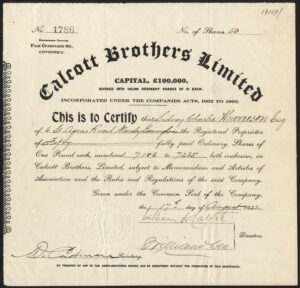 No. 1786.
No. of Shares, 50
REGISTERED OFFICE:
FAR GOSFORD ST.
COVENTRY.
Calcott Brothers Limited
CAPITAL, £100,000,
DIVIDED INTO 100,000 ORDINARY SHARES OF £1 EACH.
INCORPORATED UNDER THE COMPANIES ACTS, 1862 TO 1890.
This is to Certify that Sidney Charles Harrison Esq
of Road is the Registered Proprietor
of Fifty fully paid Ordinary Shares of
One Pound each, numbered 7186 to 7235 both inclusive, in
Calcott Brothers, Limited, subject to Memorandum and Articles of
Association and the Rules and Regulations of the said Company.
Given under the Common Seal of the Company,
this 17th day of August 1922
William Calcott
Directors.
Secretary.
TO TRANSFER OF ANY OF THE ABOVE-MENTIONED SHARES CAN BE REGISTERED WITHOUT THE PRODUCTION OF THIS CERTIFICATE.